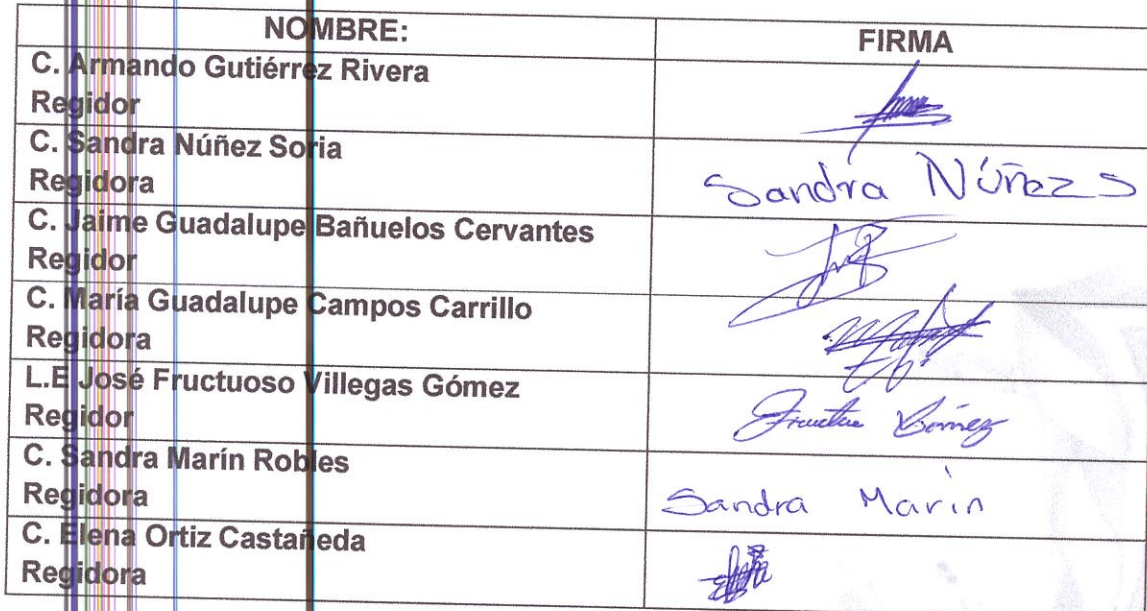 NOMBRE: FIRMA
C. Armando Gutiérrez Rivera
Regidor
C. Sandra Núñez Soria
Regidora
Sandra Núñez S
C. Jaime Guadalupe Bañuelos Cervantes
Regidor
C. María Guadalupe Campos Carrillo
Regidora
L.E José Fructuoso Villegas Gómez
Regidor
C. Sandra Marín Robles
Regidora
Sandra Marin
C. Elena Ortiz Castañeda
Regidora